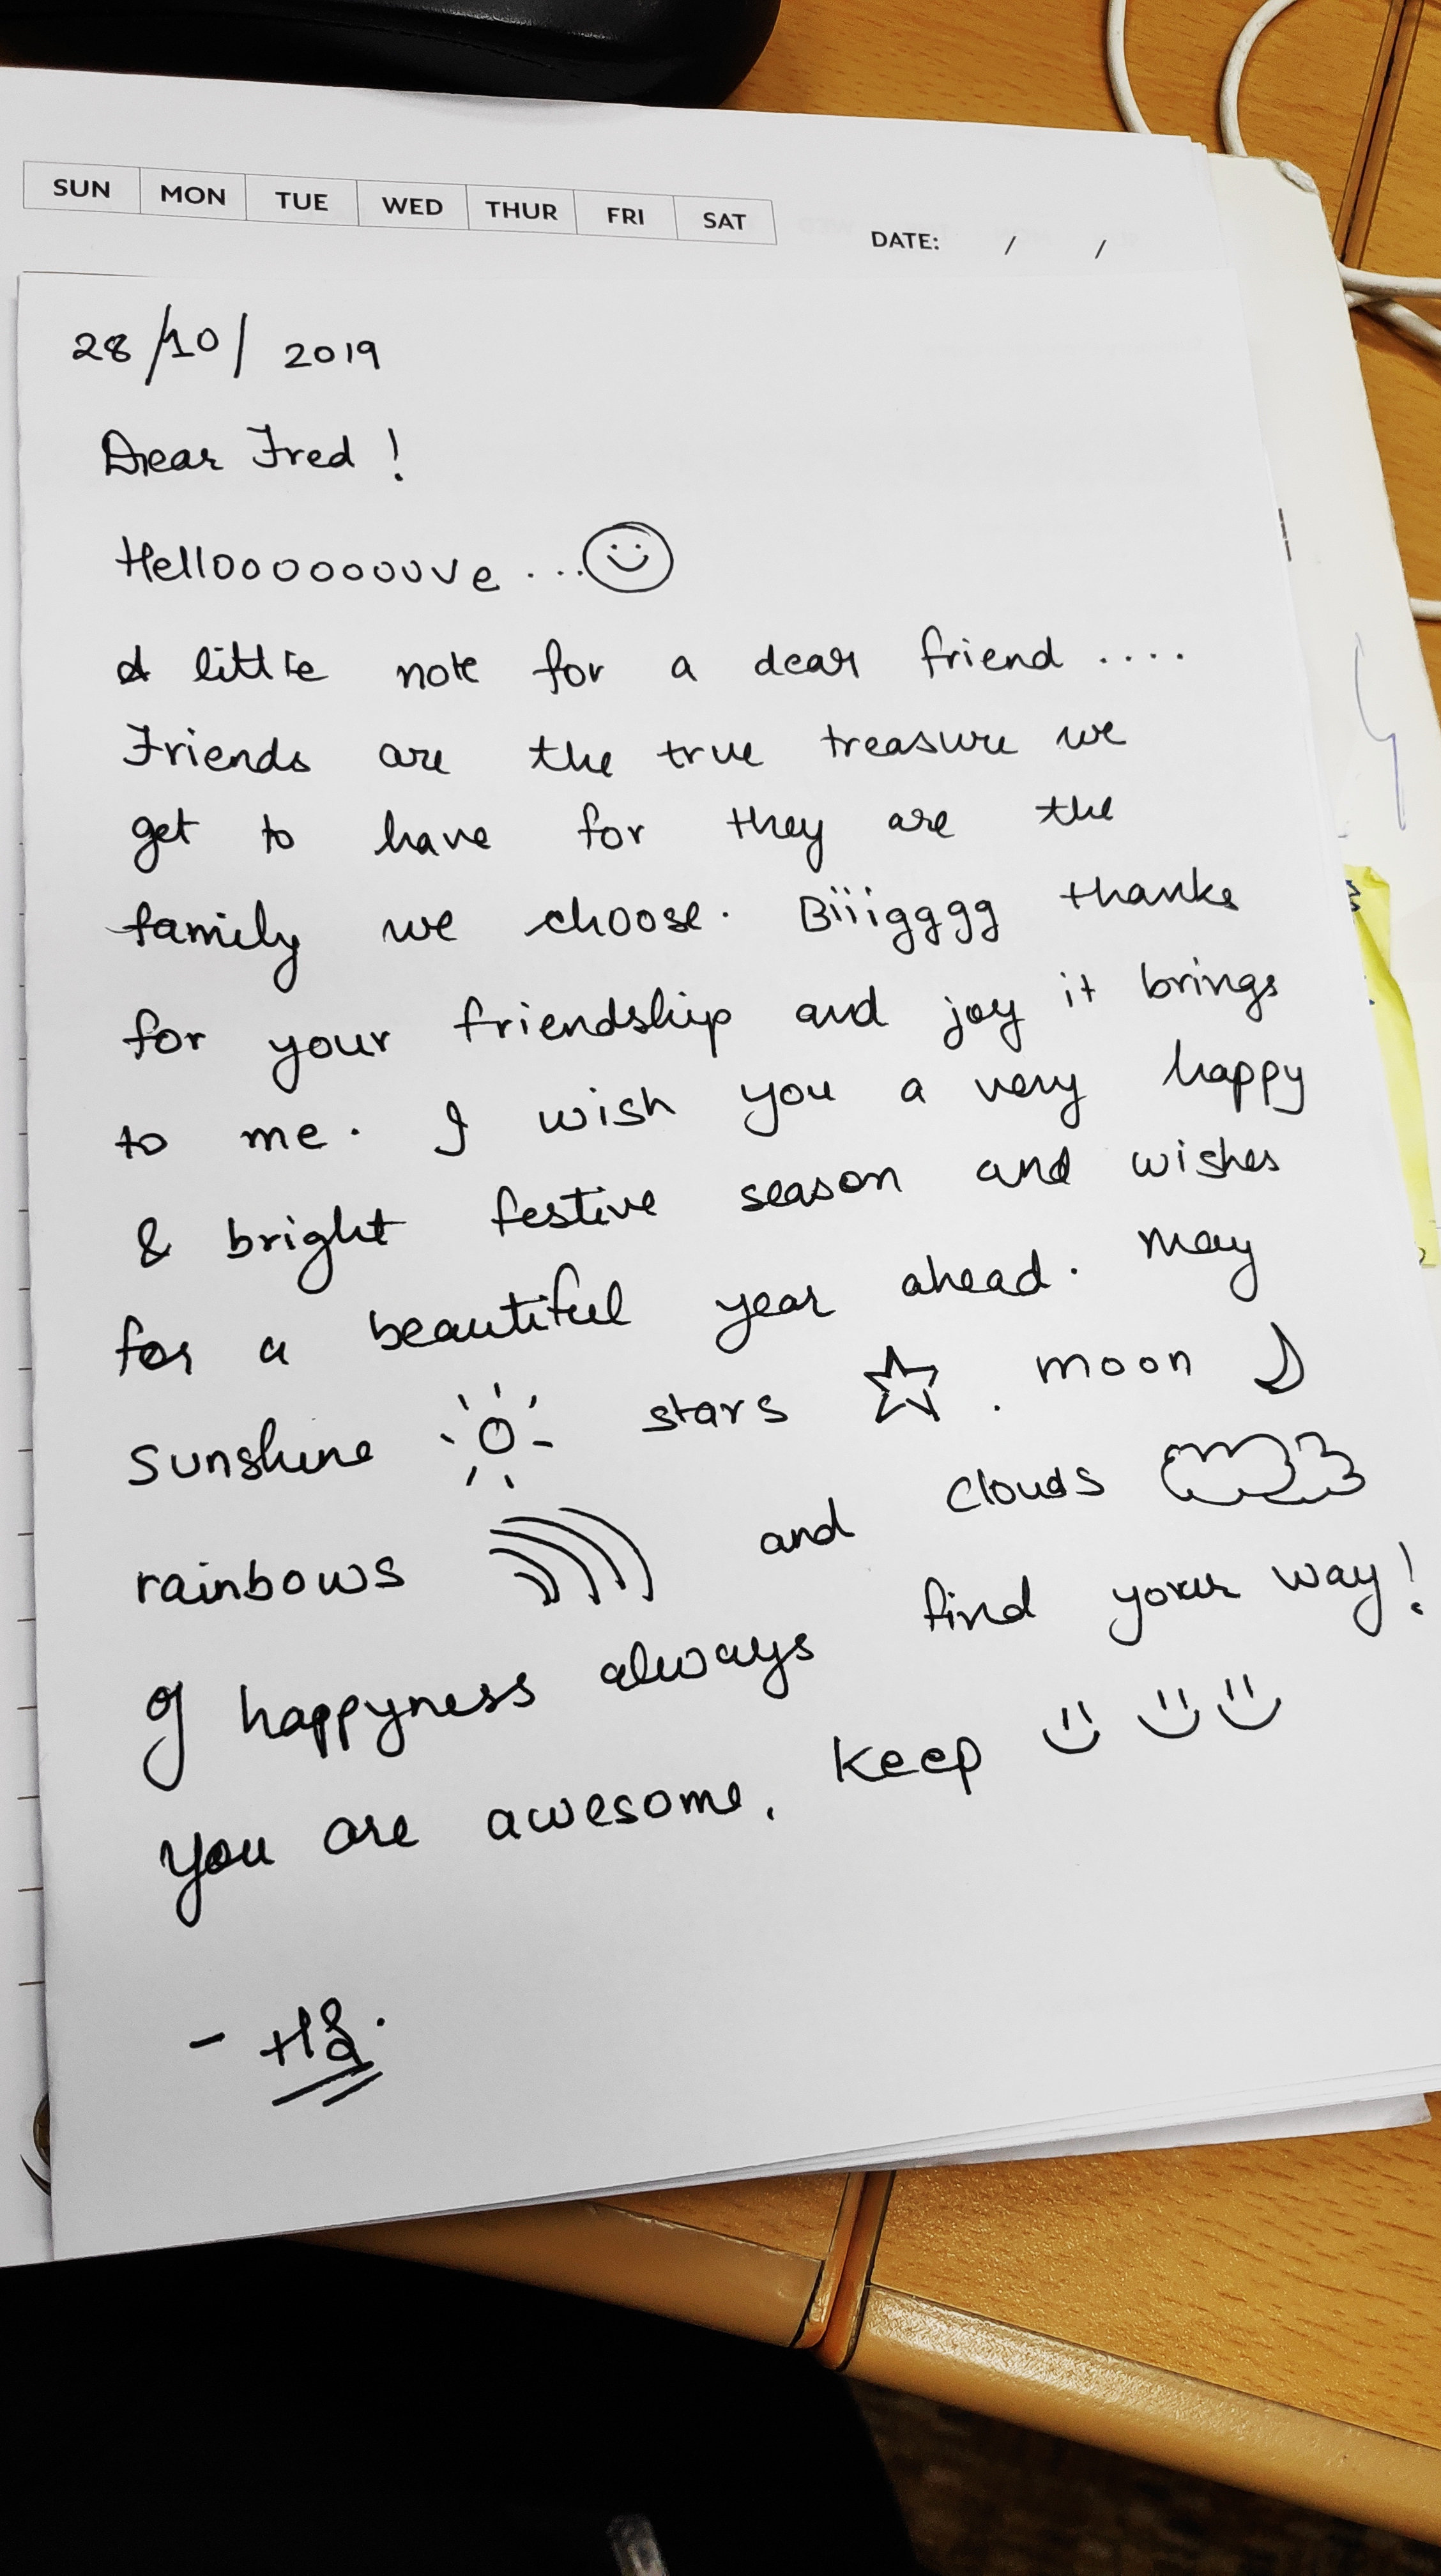 SUN MON TUE WED THUR FRI SAT
DATE: / /
28/10/2019
Dear Fred!
Helloooooouve...
A little note for a dear friend ....
Friends are the true treasure we
get to have for they are the
family we choose. Biiigggg thanks
for your friendship and joy it brings
to me. I wish you a very happy
& bright festive season and wishes
for a beautiful year ahead. May
sunshine stars . moon
rainbows and clouds
of happyness always find your way!
You are awesome. Keep
- HS.